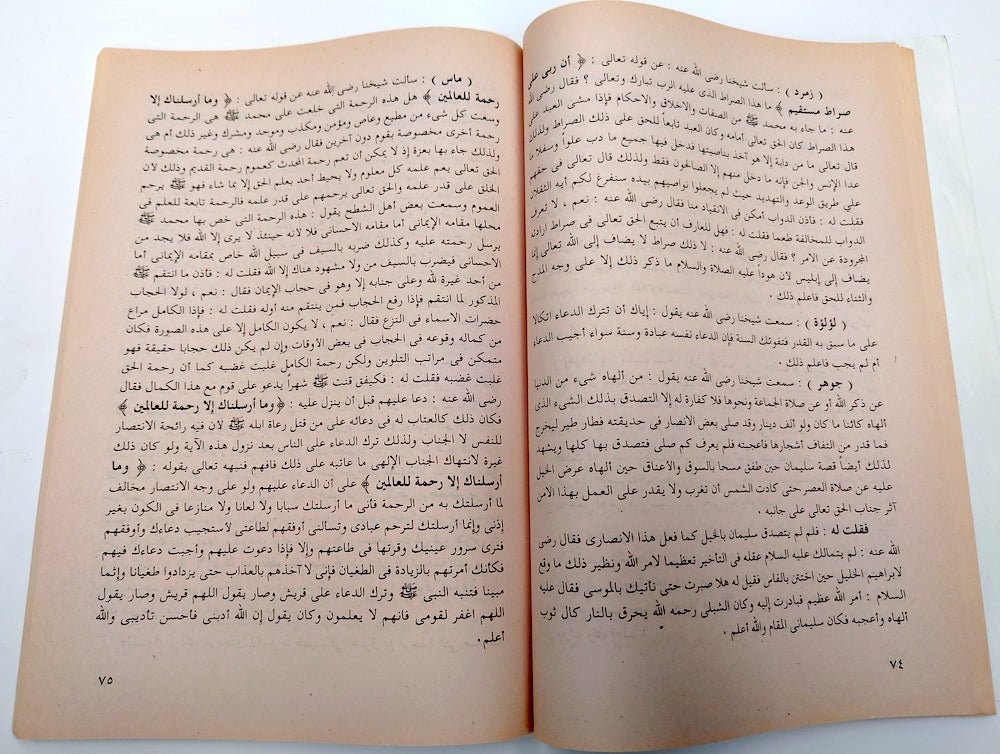 ( زمرد ) : سألت شيخنا رضى الله عنه : عن قوله تعالى : ﴿ أن ربى على
صراط مستقيم ﴾ ما هذا الصراط الذى عليه الرب تبارك وتعالى ؟ فقال رضى الله
عنه : ما جاء به محمد ﷺ من الصفات والاخلاق والاحكام فإذا مشى العبد على
هذا الصراط كان الحق تعالى أمامه وكان العبد تابعاً للحق على ذلك الصراط ولذلك
قال تعالى ما من دابة إلا هو آخذ بناصيتها فدخل فيها جميع ما دب علواً وسفلا ما
عدا الإنس والجن فإنه ما دخل منهم إلا الصالحون فقط ولذلك قال تعالى فى حقهم
على طريق الوعد والتهديد حيث لم يجعلوا نواصيهم بيده سنفرغ لكم أيه الثقلان
فقلت له : فأذن الدواب أمكن فى الانقياد منا فقال رضى الله عنه : نعم ، لا تعرف
الدواب للمخالفة طعما فقلت له : فهل للعارف أن يتبع الحق تعالى فى صراط ارادى
المجرودة عن الامر ؟ فقال رضى الله عنه : لا ذلك صراط لا يضاف إلى الله تعالى إنما
يضاف إلى إبليس لأن هوداً عليه الصلاة والسلام ما ذكر ذلك إلا على وجه المدح
والثناء للحق فاعلم ذلك .
( لؤلؤة ) : سمعت شيخنا رضى الله عنه يقول : إياك أن تترك الدعاء اتكالا
على ما سبق به القدر فتفوتك السنة فإن الدعاء نفسه عبادة وسنة سواء أجيب الدعاء
أم لم يجب فاعلم ذلك .
( جوهر ) : سمعت شيخنا رضى الله عنه يقول : من ألهاه شىء من الدنيا
عن ذكر الله أو عن صلاة الجماعة ونحوها فلا كفارة له إلا التصدق بذلك الشىء الذى
ألهاه كائنا ما كان ولو ألف دينار وقد صلى بعض الانصار فى حديقته فطار طير ليخرج
فما قدر من التفاف أشجارها فأعجبته فلم يعرف كم صلى فتصدق بها كلها ويشهد
لذلك أيضاً قصة سليمان حين طفق مسحا بالسوق والاعناق حين ألهاه عرض الخيل
عليه عن صلاة العصر حتى كادت الشمس أن تغرب ولا يقدر على العمل بهذا الامن
آثر جناب الحق تعالى على جانبه .
فقلت له : فلم لم يتصدق سليمان بالخيل كما فعل هذا الانصارى فقال رضى
الله عنه : لم يتمالك عليه السلام عقله فى التأخير تعظيما لامر الله ونظير ذلك ما وقع
لابراهيم الخليل حين اختتن بالفاس فقيل له هلا صبرت حتى نأتيك بالموسى فقال عليه
السلام : أمر الله عظيم فبادرت إليه وكان الشبلى رحمه الله يحرق بالنار كال ثوب
ألهاه وأعجبه فكان سليمانى المقام والله أعلم .
٧٤
( ماس ) : سالت شيخنا رضى الله عنه عن قوله تعالى : ﴿ وما أرسلناك إلا
رحمة للعالمين ﴾ هل هذه الرحمة التى خلعت على محمد ﷺ هى الرحمة التى
وسعت كل شىء من مطيع وعاص ومؤمن ومكذب وموحد ومشرك وغير ذلك أم هى
رحمة أخرى مخصوصة بقوم دون آخرين فقال رضى الله عنه : هى رحمة مخصوصة
ولذلك جاء بها بعزة إذ لا يمكن أن تعم رحمة المحدث كعموم رحمة القديم وذلك لان
الحق تعالى يعم علمه كل معلوم ولا يحيط أحد بعلم الحق إلا بما شاء فهو ﷺ يرحم
الخلق على قدر علمه والحق تعالى يرحمهم على قدر علمه فالرحمة تابعة للعلم فى
العموم وسمعت بعض أهل الشطح يقول : هذه الرحمة التى خص بها محمد ﷺ
محلها مقامه الإيمانى أما مقامه الاحسانى فلا لانه حينئذ لا يرى إلا الله فلا يجد من
يرسل رحمته عليه وكذلك ضربه بالسيف فى سبيل الله خاص بمقامه الإيمانى أما
الاحسانى فيضرب بالسيف من ولا مشهود هناك إلا الله فقلت له : فأذن ما انتقم ﷺ
من أحد غيرة لله وعلى جنابه إلا وهو فى حجاب الإيمان فقال : نعم ، لولا الحجاب
المذكور لما انتقم فإذا رفع الحجاب فمن ينتقم منه أوله فقلت له : فإذا الكامل مراع
حضرات الاسماء فى النزع فقال : نعم ، لا يكون الكامل إلا على هذه الصورة فكان
من كماله وقوعه فى الحجاب فى بعض الأوقات وإن لم يكن ذلك حجابا حقيقة فهو
متمكن فى مراتب التلوين ولكن رحمة الكامل غلبت غضبه كما أن رحمة الحق
غلبت غضبه فقلت له : فكيف قنت ﷺ شهراً يدعو على قوم مع هذا الكمال فقال
رضى الله عنه : دعا عليهم قبل أن ينزل عليه : ﴿ وما أرسلناك إلا رحمة للعالمين ﴾
فكان ذلك كالعتاب له فى دعائه على من قتل رعاة ابله ﷺ لأن فيه رائحة الانتصار
للنفس لا الجناب ولذلك ترك الدعاء على الناس بعد نزول هذه الآية ولو كان ذلك
غيرة لانتهاك الجناب الإلهى ما عاتبه على ذلك فافهم فنبهه تعالى بقوله : ﴿ وما
أرسلناك إلا رحمة للعالمين ﴾ على أن الدعاء عليهم ولو على وجه الانتصار مخالف
لما أرسلتك به من الرحمة فأنى ما أرسلتك سبابا ولا لعانا ولا منازعا فى الكون بغير
إذنى وإنما أرسلتك لترحم عبادى وتسألنى أوفقهم لطاعتى لأستجيب دعاءك وأوفقهم
فترى سرور عينيك وقرتها فى طاعتهم وإلا فإذا دعوت عليهم وأجبت دعاءك فيهم
فكأنك أمرتهم بالزيادة فى الطغيان فإنى لا آخذهم بالعذاب حتى يزدادوا طغيانا وإثما
مبينا فتنبه النبى ﷺ وترك الدعاء على قريش وصار يقول اللهم قريش وصار يقول
اللهم اغفر لقومى فانهم لا يعلمون وكان يقول إن الله أدبنى فأحسن تأديبى والله
أعلم .
٧٥